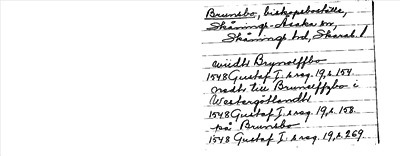 Brunsbo, biskopsboställe,
Skånings-Åsaka sn,
Skånings hd, Skarab. l
widh Brynolffbo
1548 Gustaf I:s reg. 19, s. 154.
nedh till Brunolffzbo i
Westergötlandh
1548 Gustaf I:s reg. 19, s. 158.
på Brunsbo
1548 Gustaf I:s reg. 19, s. 269.